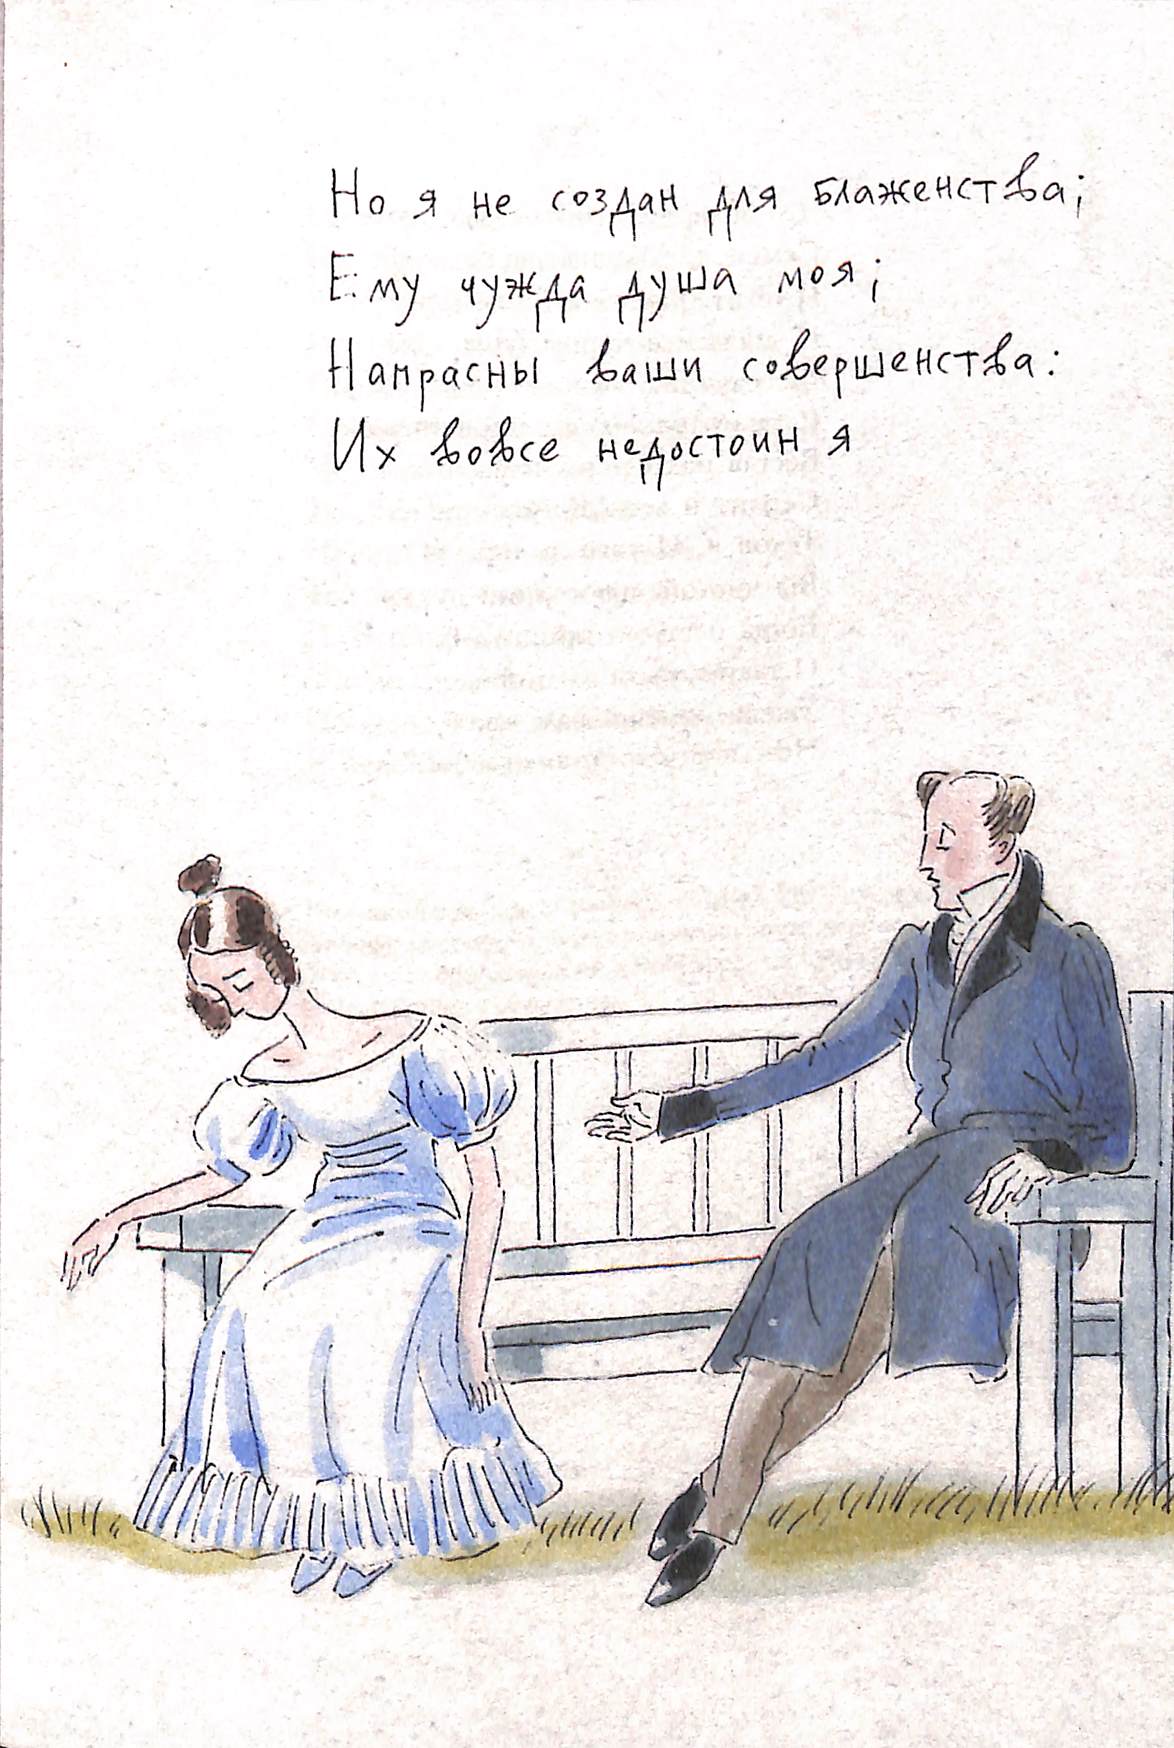 Но я не создан для блаженства;
Ему чужда душа моя;
Напрасны ваши совершенства:
Их вовсе недостоин я